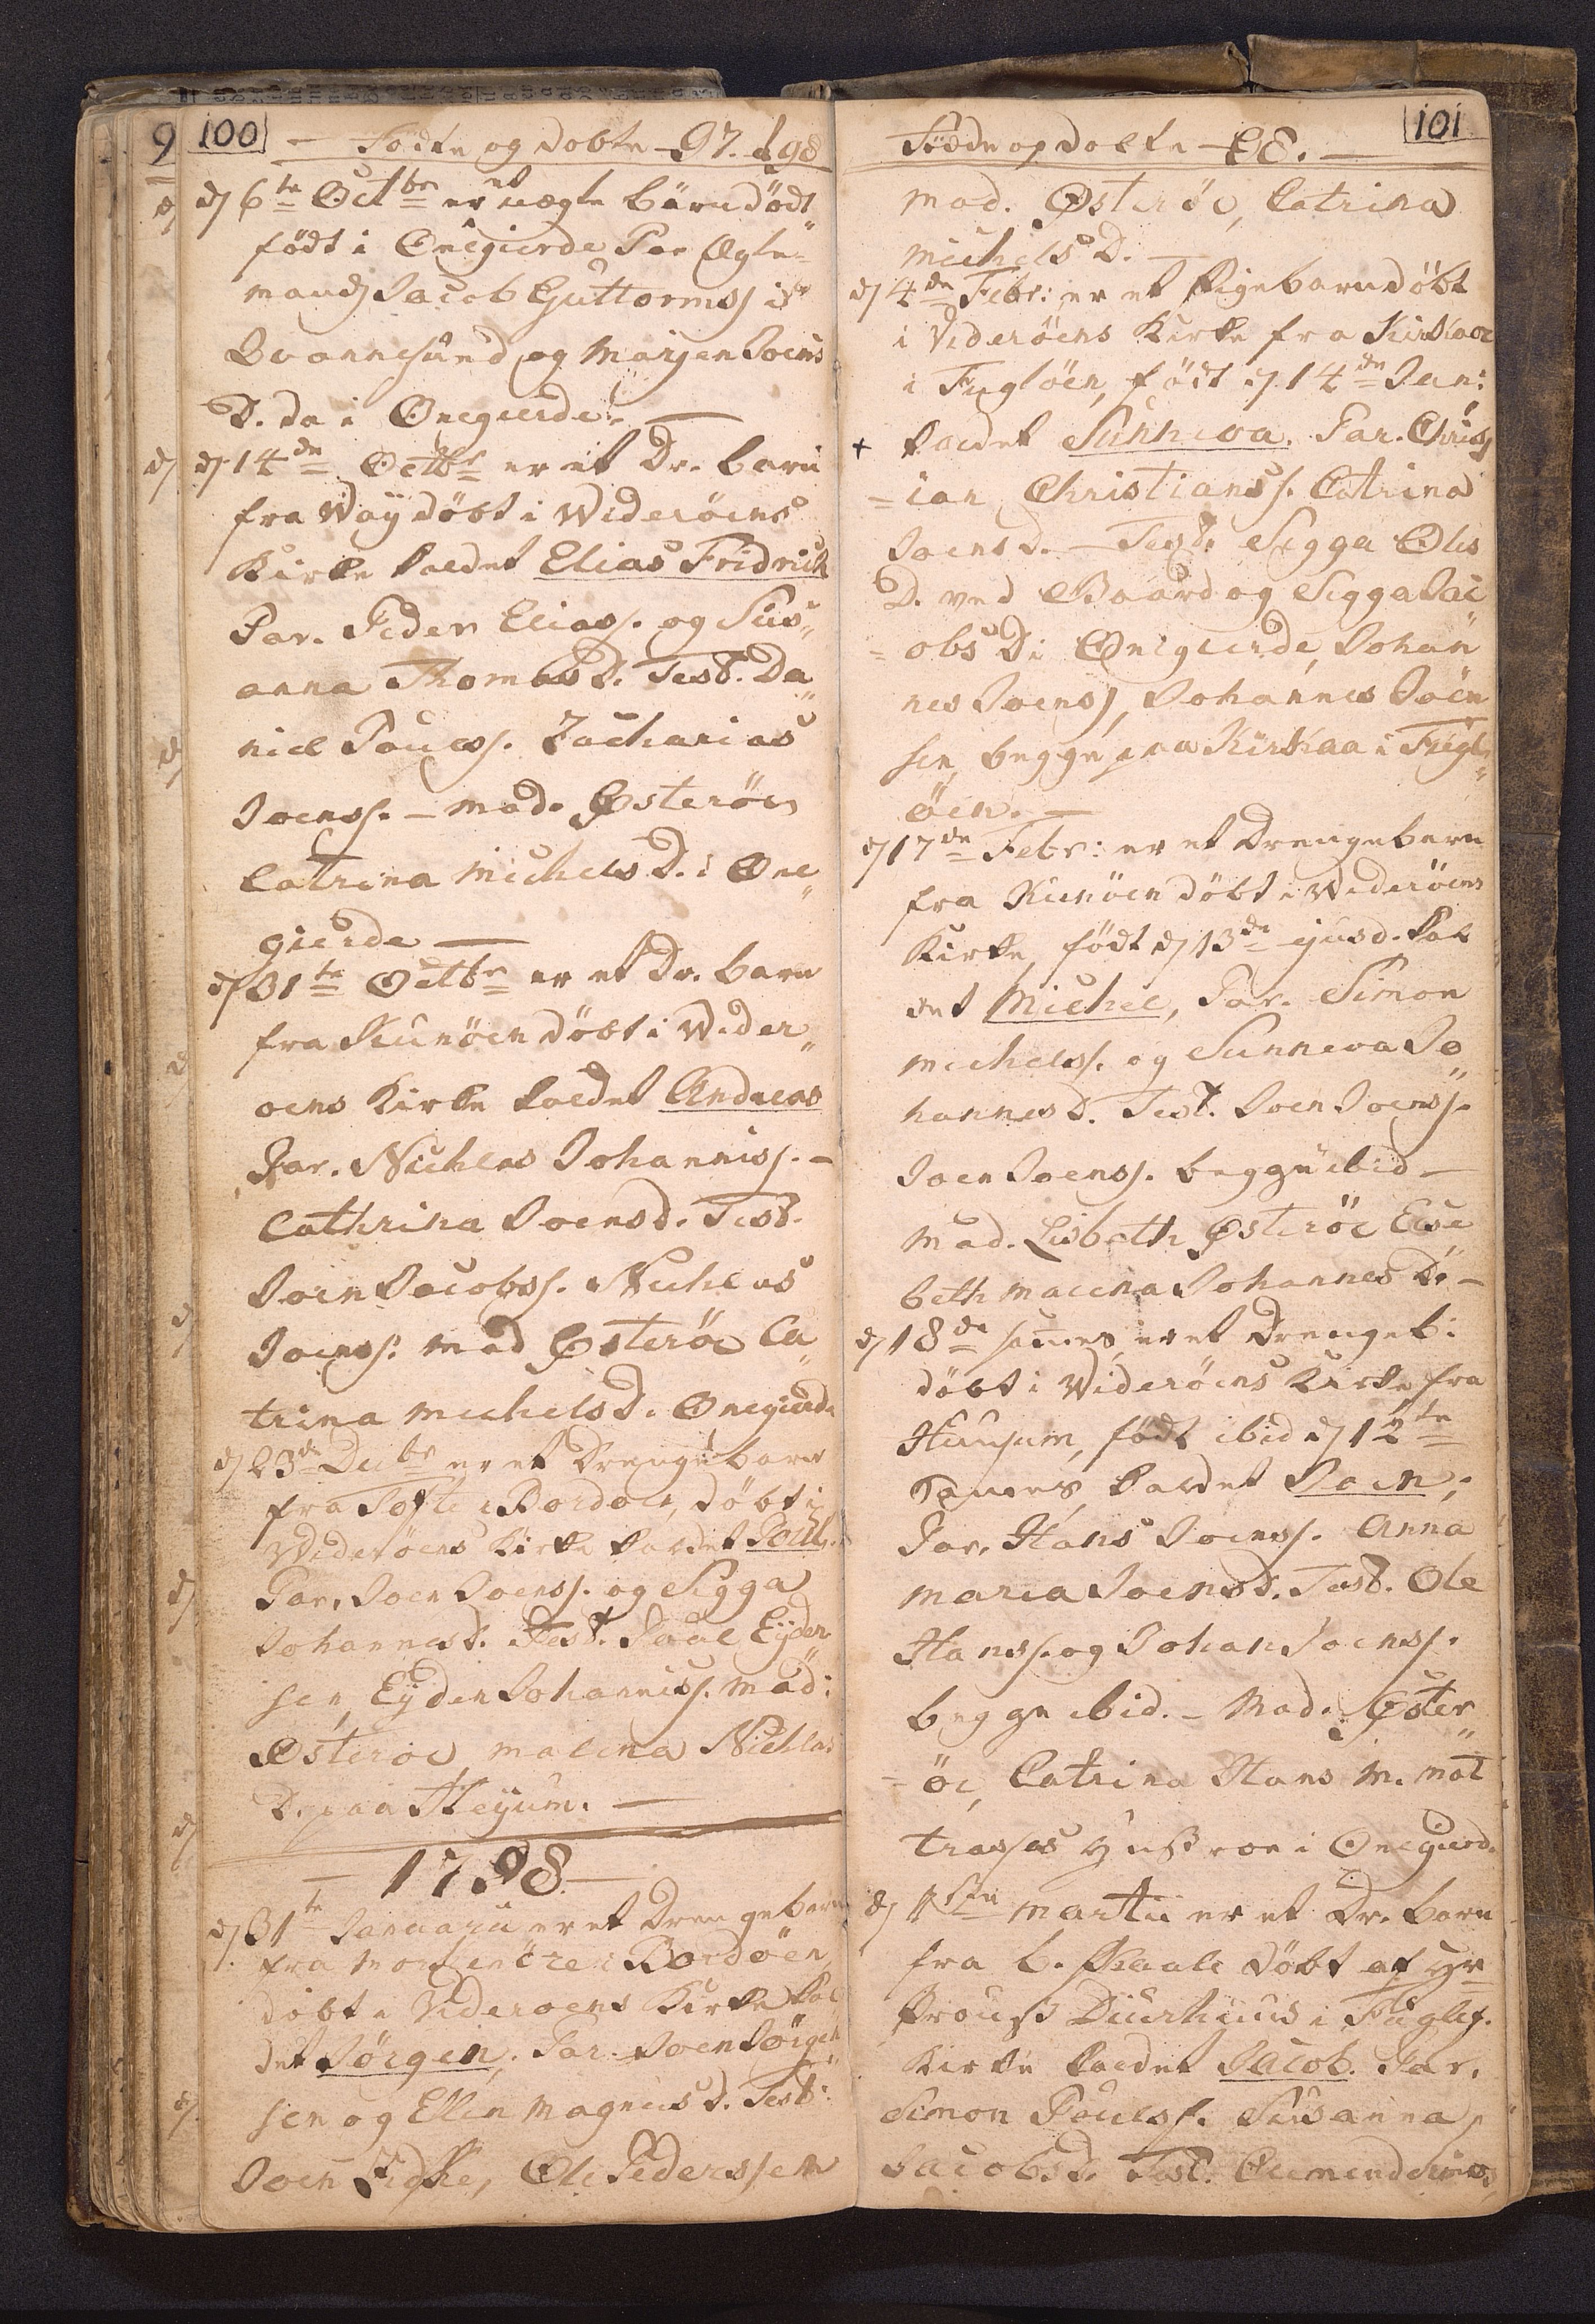 100
Födte og dobte 97. & 98
d 6te Octbr er et uægte bärn dödt
födt i Onegierde Par Ægte-
mand Jacob Guttormss i
Qvannesund og Marjen Joens
D. da i Onegierde. —
d 14de Octbr er et Dr. barn
fra Waÿ döbt i Wideröens
Kirke kaldet Elias Fridrich
Par. Peder Eliass. og Sus„
anna Thomas D. Test. Da„
niel Poulss. Zacharias
Joenss. — mad. Østeröe,
Catrina Michels D. i One„
gierde —
d 31te Octbr er et Dr. barn
fra Kunöen döbt i Wider„
oens Kirke kaldet Andreas
Par. Nichlas Johanniss. —
Cathrina Joensd. Test.
Joen Jacobss. Nichlas
Joenss. mad Østeröe Ca„
trina Michelsd. Onegierde
d 23de Decbr er et Drengebarn
fra Tofte i Bordoen, döbt i
Wideröens Kirke kaldet Poul.
Par. Joen Joenss. og Sigga
Johannesd. Test. Poul Eÿder„
sen, Eÿden Johanniss. mad:
Østeroe, malena Nichlas
D. paa Skeÿum. —
— 1798 —
d 31te Januarii er et Drengebarn
fra Norden öre i Bordöen,
döbt i Videroens Kirke kal
det Jörgen. Par. Joen Jörgen„
sen og Ellin Magnusd. Test:
Joen Zidske, Ole Pederssen
101
Födde og dobte — 98. —
mad. Østeröe, Catrina
Michels D. —
d 4de Febr: er et Pigebarn döbt
i Videröens Kirke fra Kirkaae
i Fuglöen, födt d. 14de Jan:
+ kaldet Sunneva. Par. Christ
=ian Christianss. Catrina
Joensd. — Test. Sigga Oles
D. ved Baard og Sigga Jac
=obs D i Onegierde, Johan„
nes Joenss, Johannes Joen
sen, begge paa Kirkaa i Fugl„
öen. —
d 17de Febr: er et Drengebarn
fra Kunöen döbt i Wideröens
Kirke, födt d 13de ejusd. kal
det Michel, Par. Simon
Michelss. og Sunneva Jo„
hannesd. Test. Joen Joenss.
Joen Joenss. begge ibid —
Mad. Lisbeth Østeröe Else
beth malena Johannes D. —
d 18de samme er et Drengeb:
döbt i Wideröens Kirke fra
Huusum, födt ibid d 12te
Samme kaldet Joen,
Par. Hans Joenss. Anna
Maria Joensd. Test. Ole
Hanss. og Johan Joenss.
begge ibid. — Mad. Øster„
=öe, Catrina Hans M. mat
trasses Hustroe i Onegierd.
d 1ste Martii er et Dr. barn
fra b. Skaale döbt af Hr
Proust Diurhuus i Fuglef.
Kirke kaldet Jacob. Par.
Simon Poulss. Susanna
Jacobsd. Test. Clemend Simons